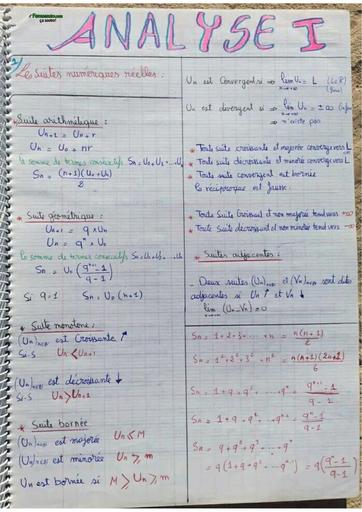 ANALYSE I
Les suites numériques réelles :
Suite arithmétique :
Un+1 = Un + r
Un = U0 + nr
la somme de termes consécutifs Sn = U0 + U1 + ... Un
Sn = (n+1)(U0+Un) / 2
* Suite géométrique :
Un+1 = q × Un
Un = qⁿ × U0
la somme de termes consécutifs
Sn = U0 (qⁿ⁺¹ - 1 / q - 1)
Si q = 1 Sn = U0 (n+1)
* Suite monotone :
(Un)n∈N est Croissante ↑
Si.S Un < Un+1
(Un)n∈N est décroissante ↓
Si.S Un > Un+1
* Suite bornée
(Un)n∈N est majorée Un ≤ M
(Un)n∈N est minorée Un ≥ m
Un est bornée si M ≥ Un ≥ m
Un est Convergent si ⇒ lim Un = L (L∈R)
n→+∞
Un est divergent si ⇒ lim Un = ±∞
⇒ n'existe pas
* Toute suite croissante et majorée converge vers L
* Toute suite décroissante et minorée converge vers L
* Toute suite convergent est bornée
la réciproque est fausse.
* Toute suite Croissant et non majorée tend vers +∞
* Toute suite décroissant et non minorée tend vers -∞
* Suites adjacentes :
- Deux suites (Un)n∈N et (Vn)n∈N sont dites
adjacentes si Un ↑ et Vn ↓
lim (Un - Vn) = 0
Sn = 1+2+3+... + n = n(n+1) / 2
Sn = 1² + 2² + 3² + n² = n(n+1)(2n+1) / 6
Sn = 1 + q + q² ... qⁿ = qⁿ⁺¹ - 1 / q - 1
Sn = 1 + q + q² ... qⁿ⁻¹ = qⁿ - 1 / q - 1
Sn = q + q² + q³ ... qⁿ
= q (1 + q + q² ... qⁿ⁻¹) = q (qⁿ - 1 / q - 1)